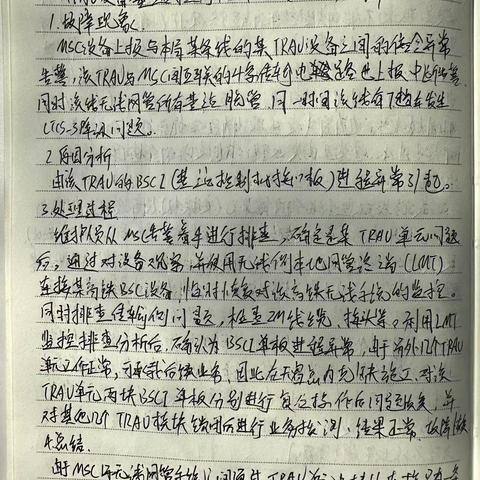 1.故障现象
MSC设备上报与本局某条线的某TRAU设备之间的信令异常
告警,该TRAU与MSC间互联的
同时该线无线网管所有基站脱管,同一时间该线有7趟车发生
CTCS-3降级问题。
2.原因分析
由该TRAU的BSCI(基站控制 接口板)进程异常引起。
3.处理过程
维护人员从MSC告警着手进行排查,确定是某TRAU单元问题
后,通过对设备观察并使用无线侧本地网管终端(LMT)
连接某高铁BSC设备,临时恢复对该高铁无线系统的监控。
同时排查传输侧问题,检查2M线缆,接头等,利用LMT
监控排查分析后,确认为BSCI单板进程异常,由于另外12个TRAU
单元工作正常,可承载后续业务,因此在天窗点内 对该
TRAU单元两块BSCI单板分别进行复位操作后问题恢复,并
对其他12个TRAU模块 后进行业务拨测,结果正常,故障修复
4.总结.
由于MSC与无线网管 TRAU